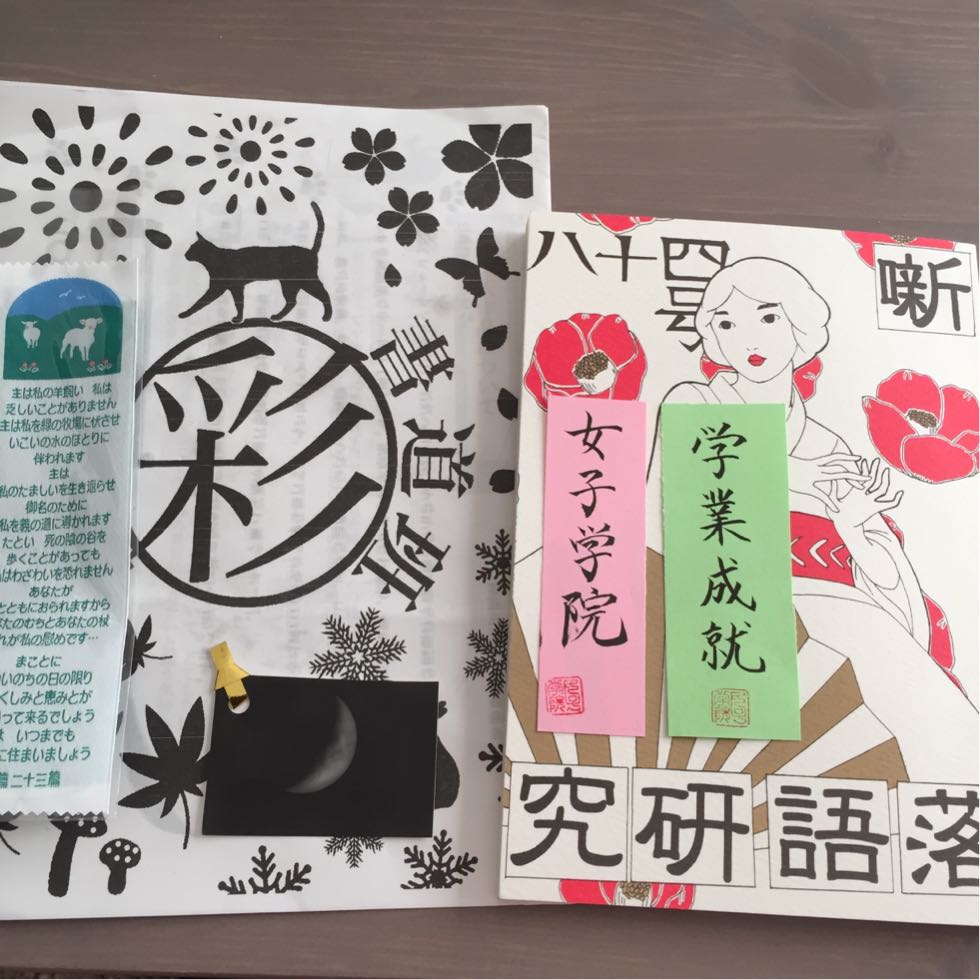 主は私の羊飼い 私は
乏しいことがありません
主は私を緑の牧場に伏させ
いこいの水のほとりに
伴われます
主は
私のたましいを生き返らせ
御名のために
私を義の道に導かれます
たとい 死の陰の谷を
歩くことがあっても
はわざわいを恐れません
あなたが
ともにおられますから
たのむちとあなたの杖
れが私の慰めです…
まことに
いのちの日の限り
くしみと恵みとが
って来るでしょう
いつまでも
に住まいましょう
篇二十三篇
彩
書道班
噺
八十四号
学業成就
女子学院
落語研究